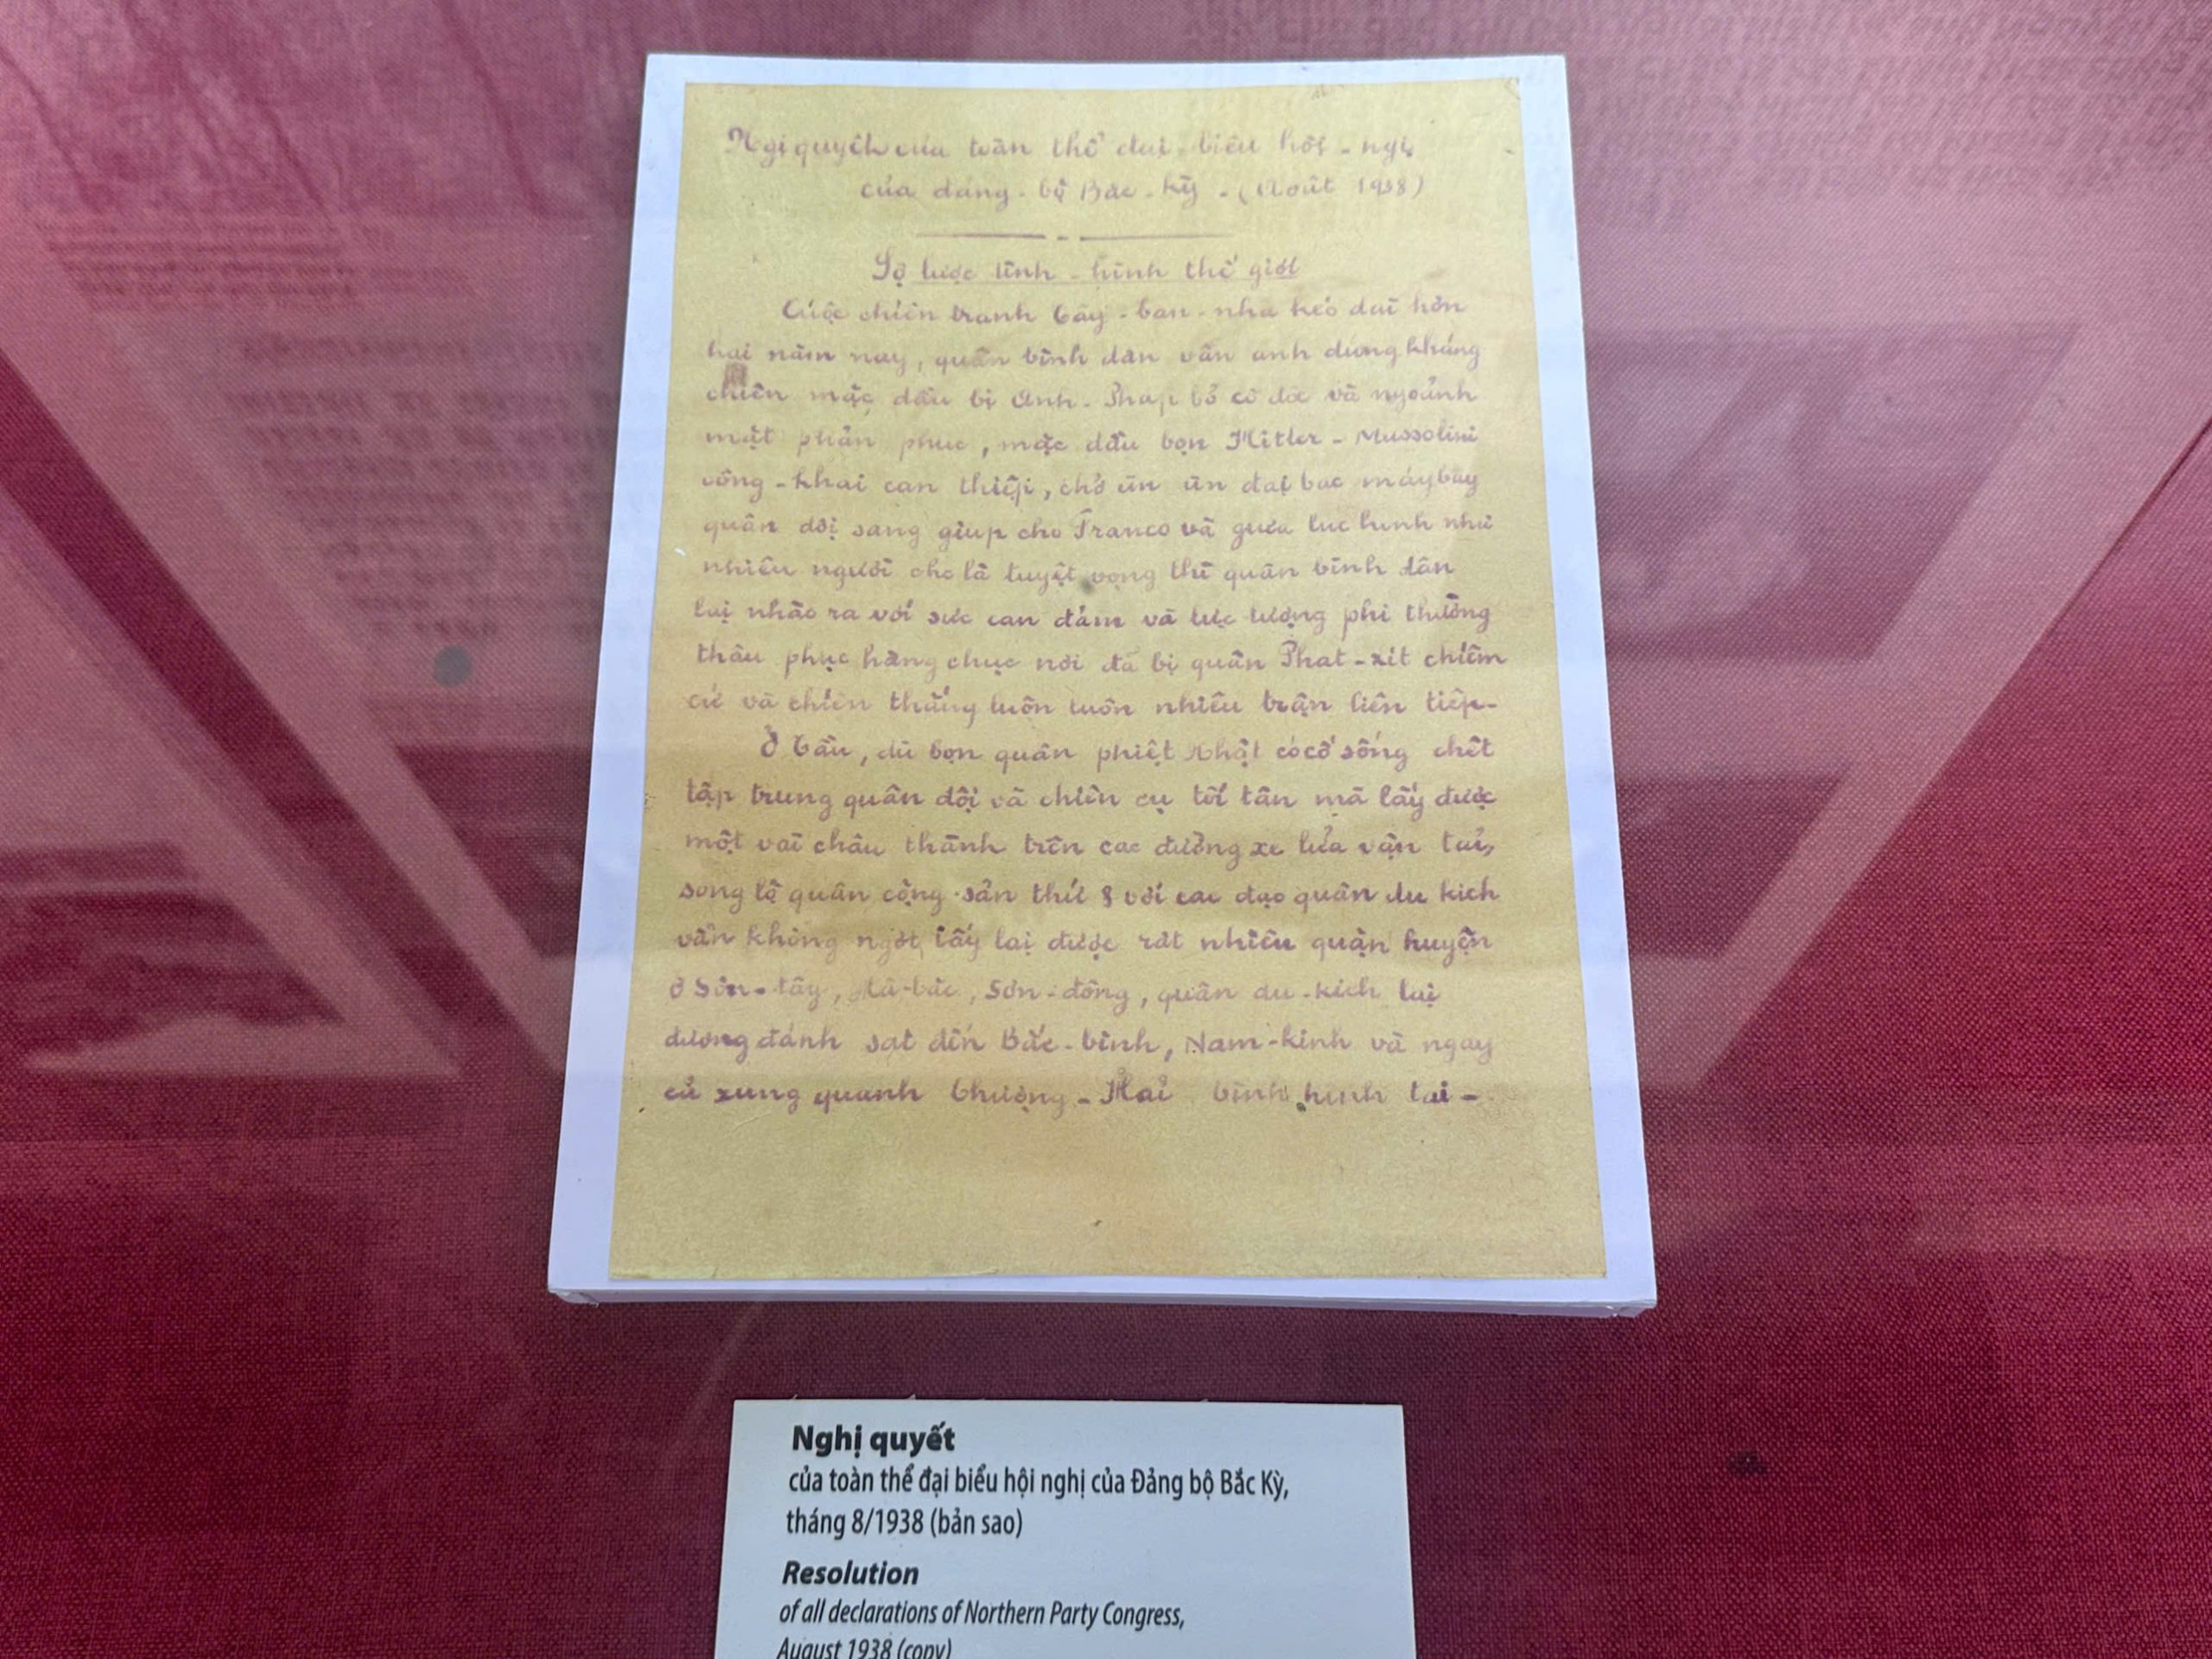 Ngị quyết của toàn thể đại-biểu hội-ngị
của đảng-bộ Bắc-kỳ-(Août 1938)
Sơ lược tình-hình thế giới
Cuộc chiến tranh Tây-ban-nha kéo dài hơn
hai năm nay, quân bình dân vẫn anh dũng kháng
chiến mặc dầu bị Anh-Pháp bỏ cô độc và ngoảnh
mặt phản phúc, mặc dầu bọn Hitler-Mussolini
công-khai can thiệp, chở ùn ùn đại bác máy bay
quân đội sang giúp cho Franco và giữa lúc hình như
nhiều người cho là tuyệt vọng thì quân bình dân
lại nhảo ra với sức can đảm và lực lượng phi thường
thâu phục hàng chục nơi đã bị quân Phát-xít chiếm
cứ và chiến thắng luôn luôn nhiều trận liên tiếp-
Ở Tầu, dù bọn quân phiệt Nhật có cố sống chết
tập trung quân đội và chiến cụ tối tân mà lấy được
một vài châu thành trên các đường xe lửa vận tải,
song lộ quân cộng-sản thứ 8 với các đạo quân du kích
vẫn không ngớt lấy lại được rất nhiều quận huyện
ở Sơn-tây, Hà-bắc, Sơn-đông, quân du-kích lại
đương đánh sát đến Bắc-bình, Nam-kinh và ngay
cả xung quanh Thượng-Hải tình hình tài-
Nghị quyết
của toàn thể đại biểu hội nghị của Đảng bộ Bắc Kỳ,
tháng 8/1938 (bản sao)
Resolution
of all declarations of Northern Party Congress,
August 1938 (copy)